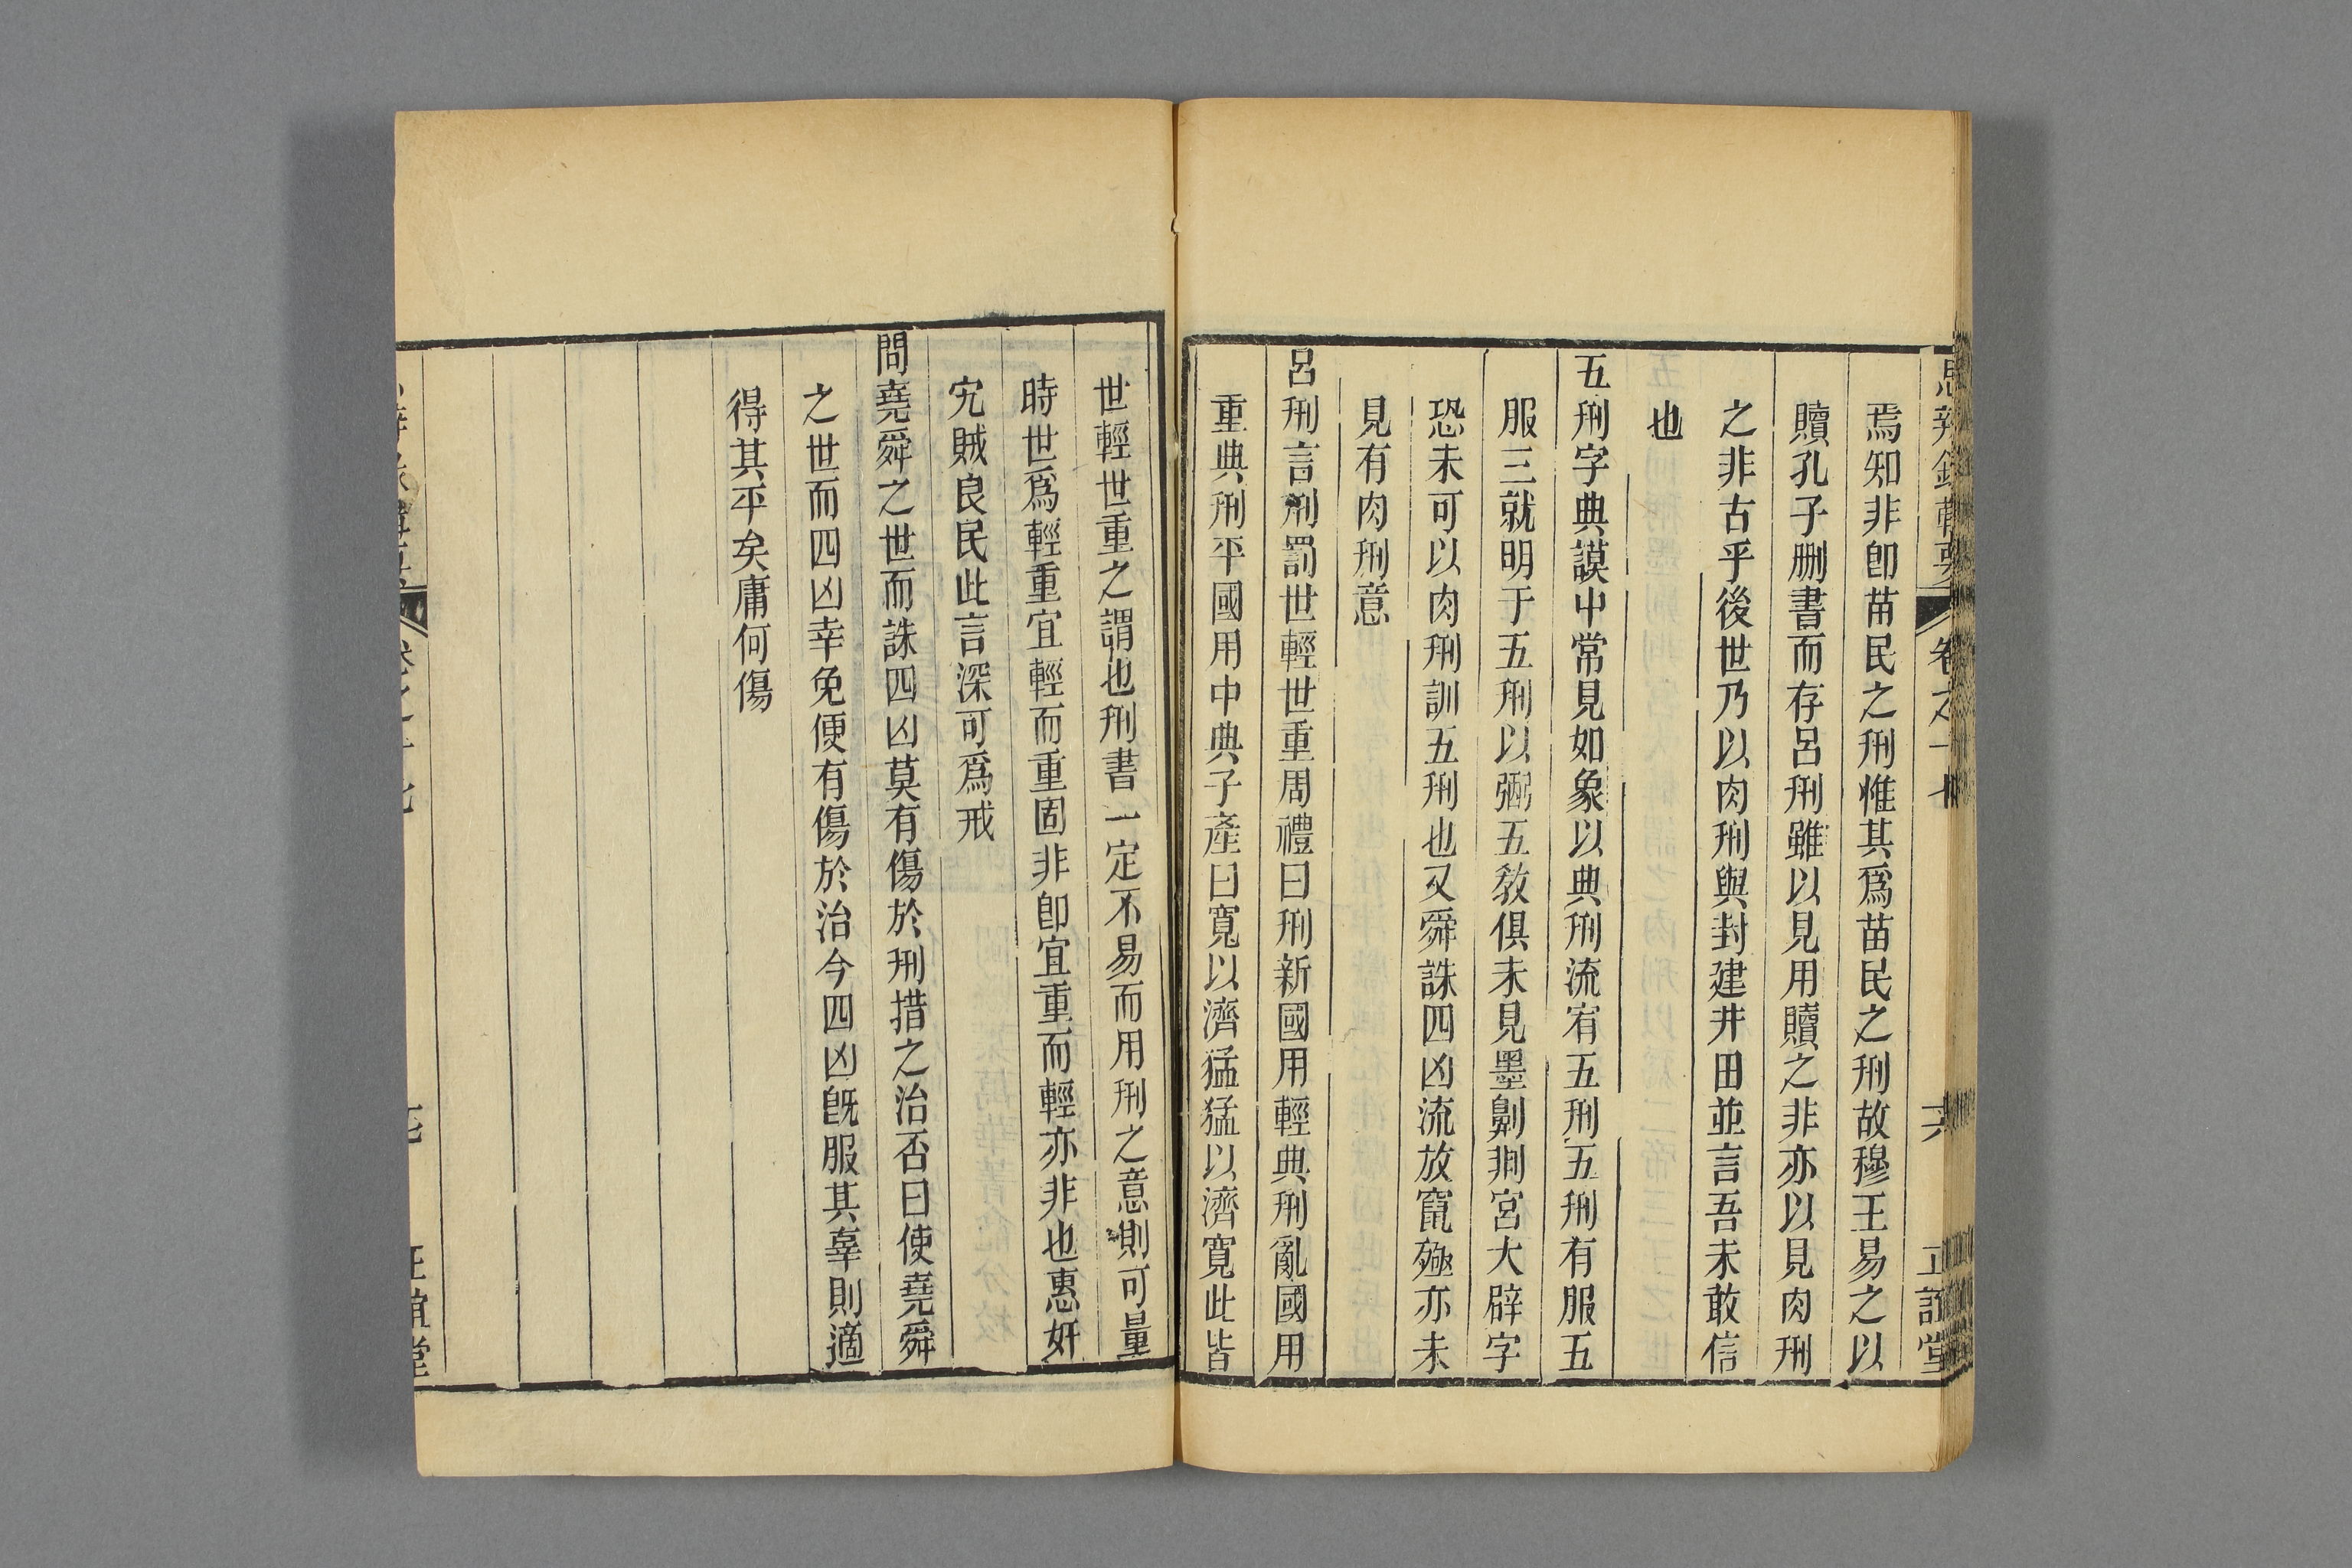 思辨錄輯要
卷之十七
六
正誼堂
焉知非卽苗民之刑惟其爲苗民之刑故穆王易之以
贖孔子刪書而存呂刑雖以見用贖之非亦以見肉刑
之非古乎後世乃以肉刑與封建井田並言吾未敢信
也
五刑字典謨中常見如象以典刑流宥五刑五刑有服五
服三就明于五刑以弼五敎俱未見墨劓剕宮大辟字
恐未可以肉刑訓五刑也又舜誅四凶流放竄殛亦未
見有肉刑意
呂刑言刑罰世輕世重周禮曰刑新國用輕典刑亂國用
重典刑平國用中典子產曰寬以濟猛猛以濟寬此皆
世輕世重之謂也刑書一定不易而用刑之意則可量
時世爲輕重宜輕而重固非卽宜重而輕亦非也惠奸
宄賊良民此言深可爲戒
問堯舜之世而誅四凶莫有傷於刑措之治否曰使堯舜
之世而四凶幸免便有傷於治今四凶旣服其辜則適
得其平矣庸何傷